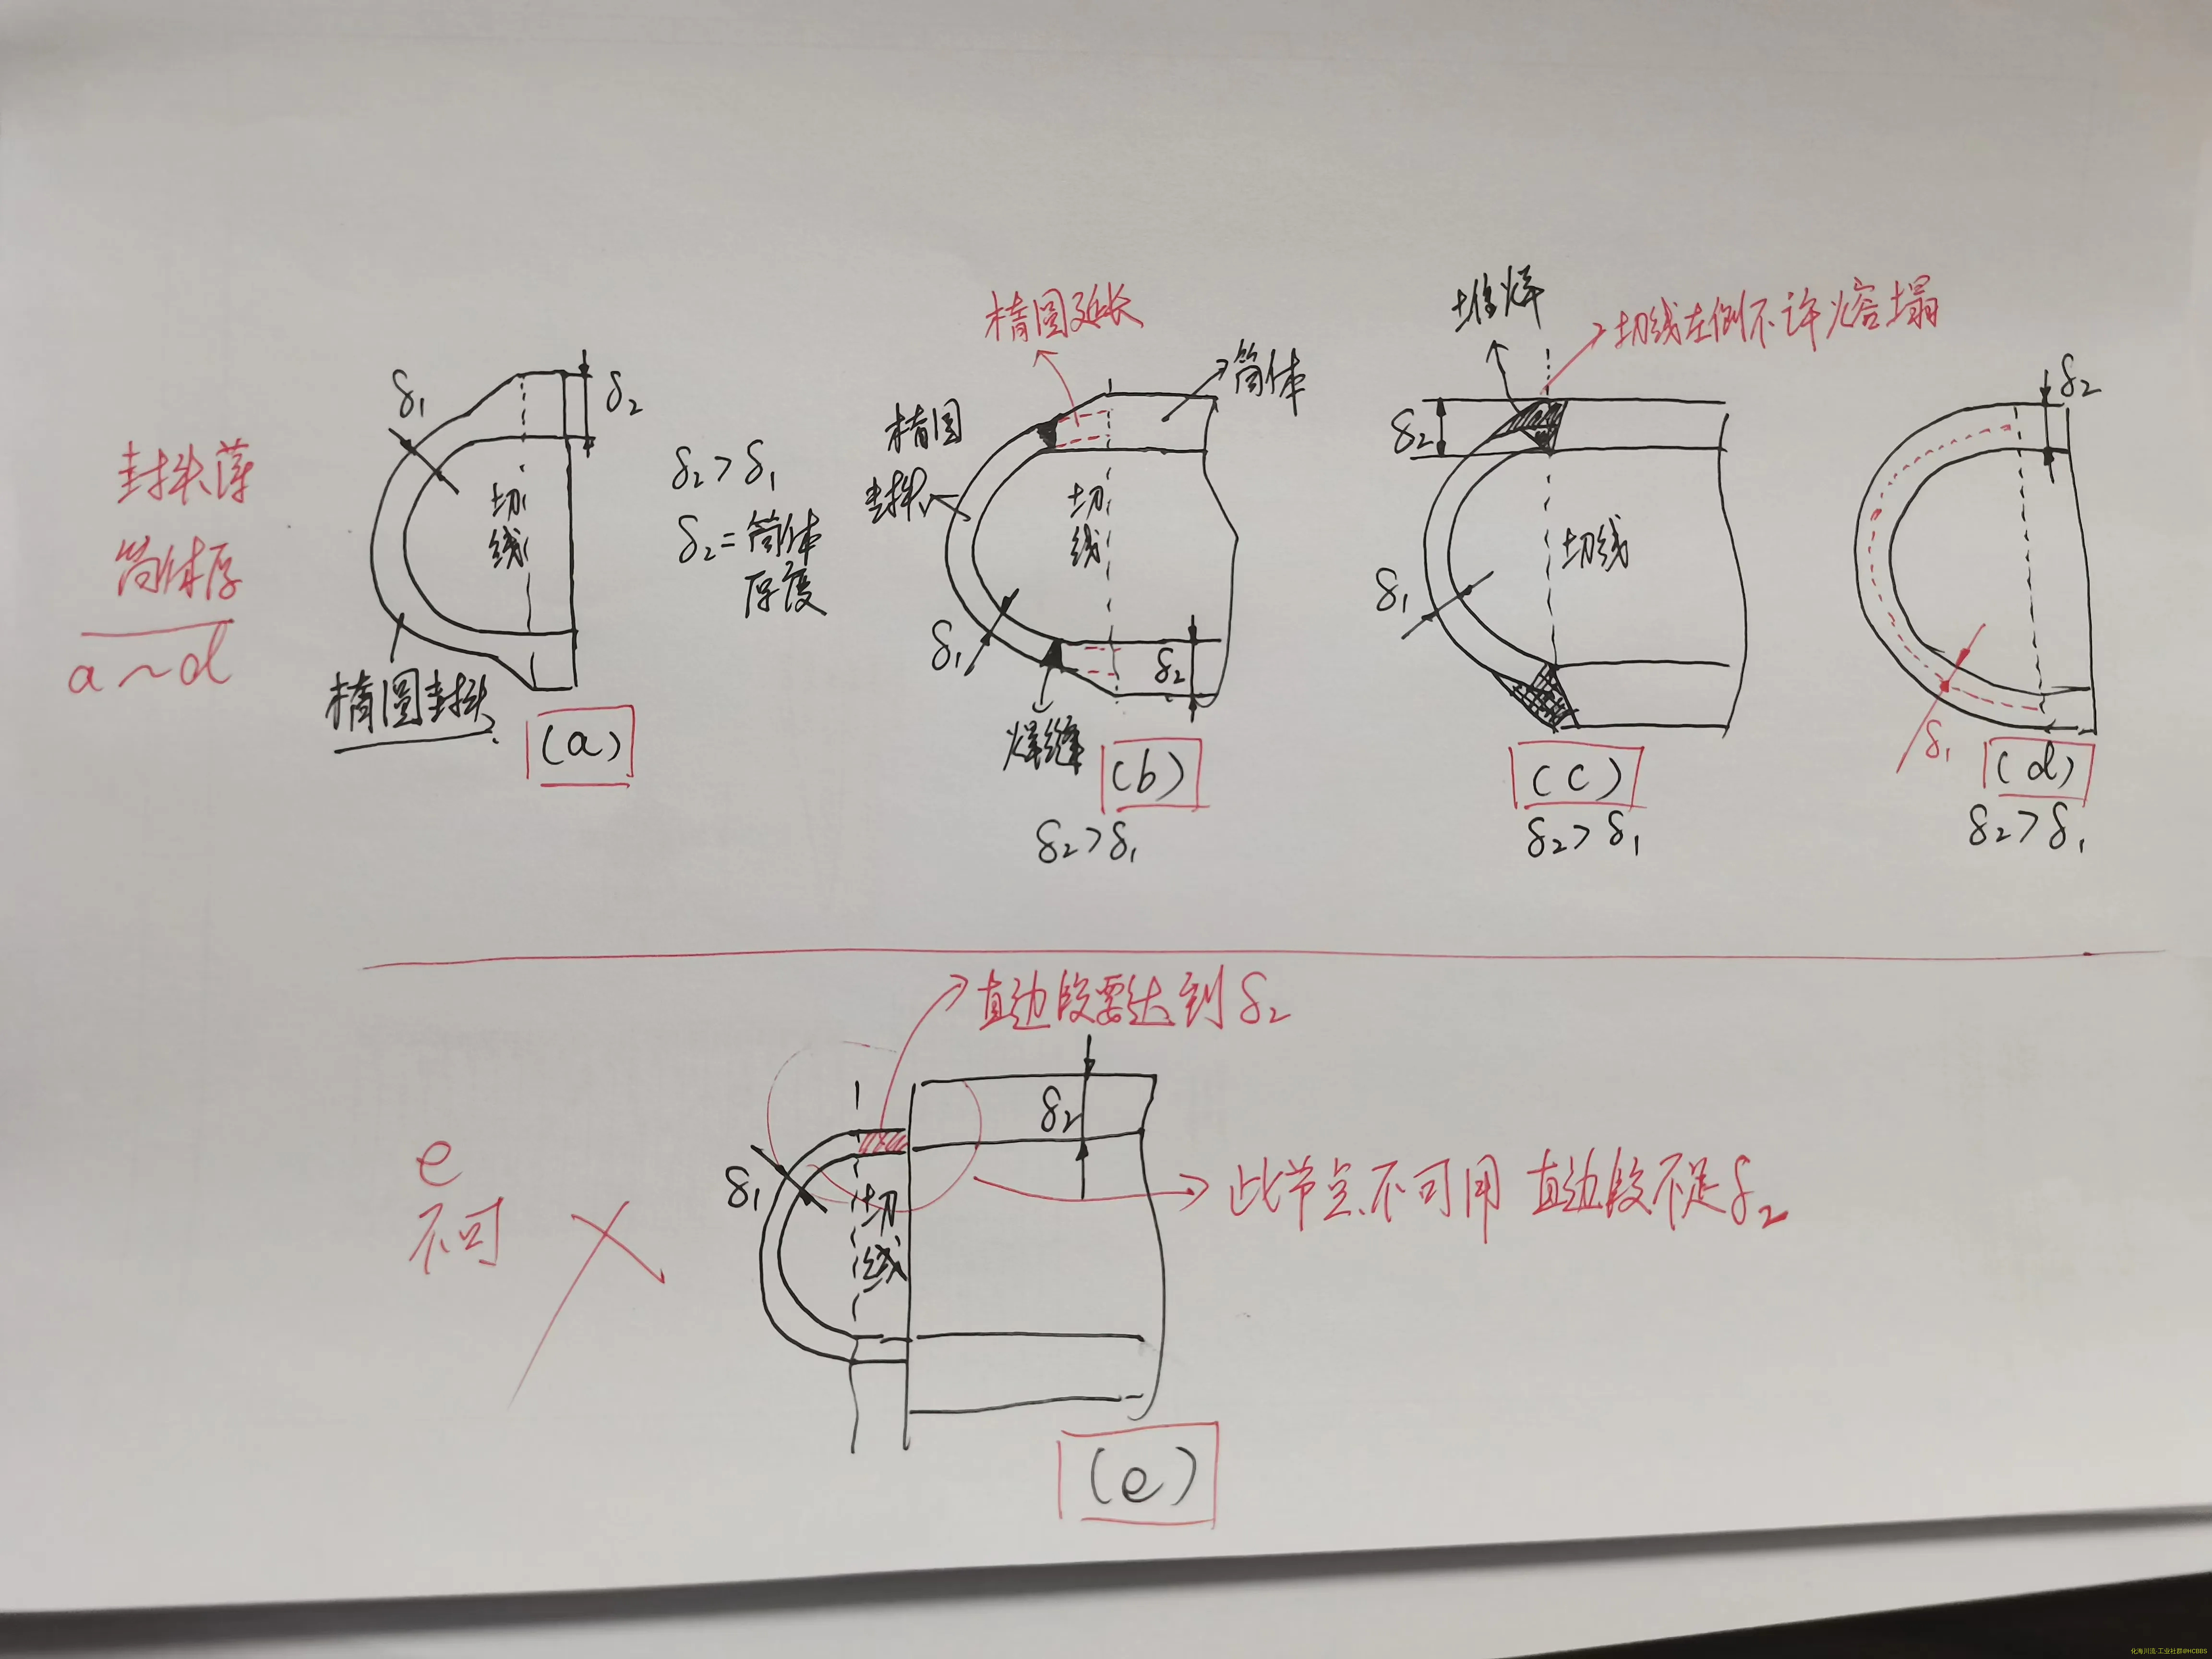 封头薄
筒体厚
a~d
δ₁
δ₂
切
线
椭圆封头
(a)
δ₂>δ₁
δ₂=筒体
厚度
椭圆延长
筒体
椭圆
封头
切
线
δ₁
δ₂
焊缝
(b)
δ₂>δ₁
堆焊
切线左侧不许熔塌
δ₂
切线
δ₁
(c)
δ₂>δ₁
δ₂
δ₁
(d)
δ₂>δ₁
直边段要达到δ₂
e
不可
δ₂
δ₁
切
线
此节点不可用 直边段不足δ₂
(e)
化海川流·工业社群@HCBBS